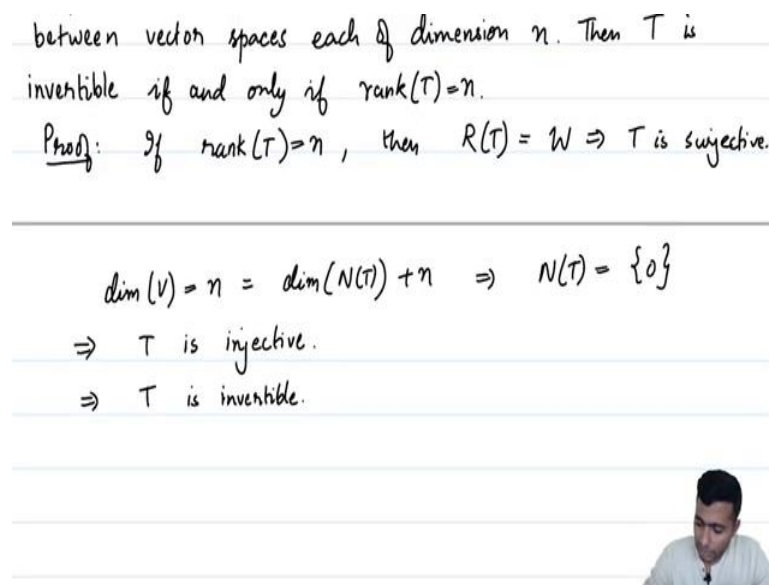 between vector spaces each of dimension n. Then T is
invertible if and only if rank(T)=n.
Proof: If rank(T)=n, then R(T) = W ⇒ T is surjective.
dim(V) = n = dim(N(T)) + n ⇒ N(T) = {0}
⇒ T is injective.
⇒ T is invertible.